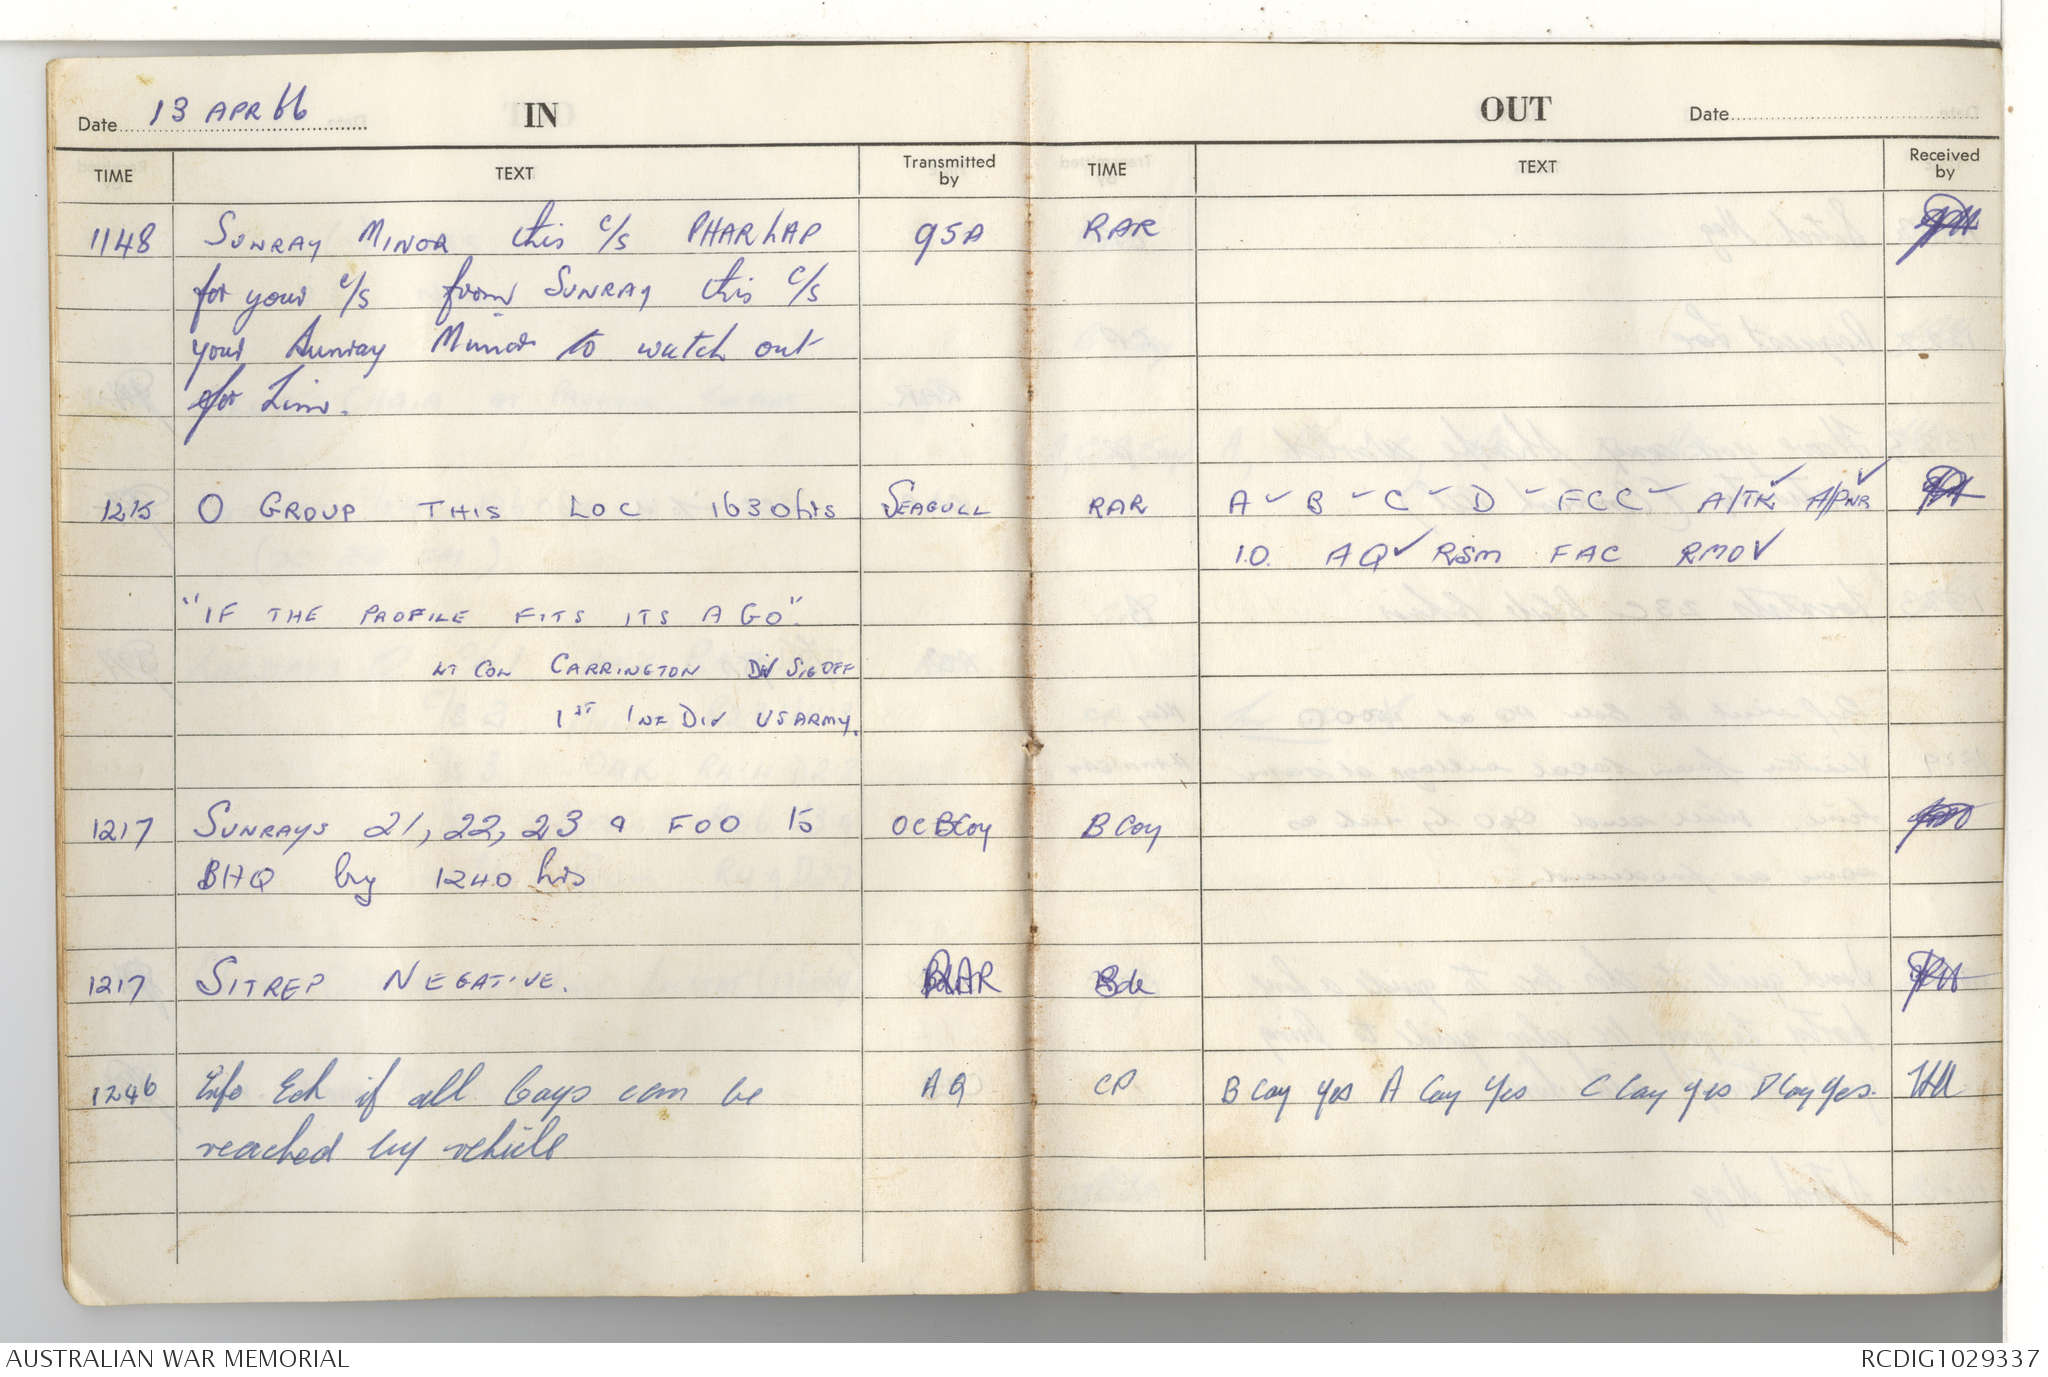 Date 13 APR 66 IN
OUT Date
TIME TEXT Transmitted by TIME TEXT Received by
1148 SUNRAY MINOR this c/s PHAR LAP 95A RAR
for your c/s from SUNRAY this c/s
your Sunray Minor to watch out
for
1215 O GROUP THIS LOC 1630hrs SEAGULL RAR A ✓ B ✓ C ✓ D ✓ FCC ✓ A/TK ✓ A/PNR ✓
I.O. AQ ✓ RSM FAC RMO ✓
"IF THE PROFILE FITS ITS A GO".
LT COL CARRINGTON DIV SIG OFF
1ST INF DIV US ARMY.
1217 SUNRAYS 21, 22, 23 & FOO to OC BCoy B Coy
BHQ by 1240 hrs
1217 SITREP NEGATIVE. RAR Bde
1246 Info Ech if all Coys can be AQ CP B Coy yes A Coy Yes C Coy yes D Coy yes.
reached by vehicle
AUSTRALIAN WAR MEMORIAL RCDIG1029337